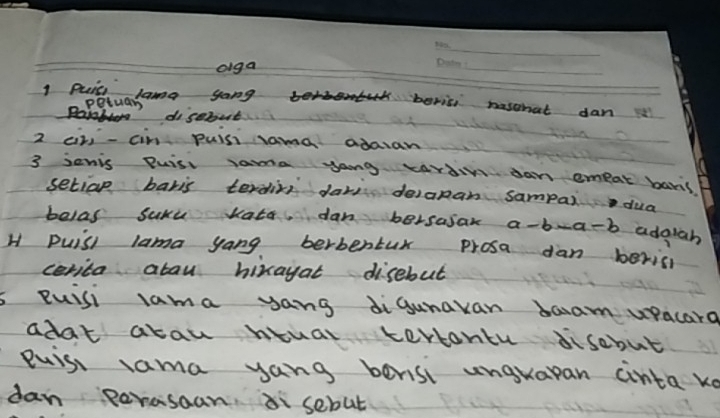 No.
Date:
olga
1 Puisi lama yang berbentuk berisi nasehat dan
petuah disebut
2 ciri - ciri puisi lama adalah
3 jenis puisi lama yang terdiri dari empat baris.
setiap baris terdiri dari delapan sampai dua
belas suku kata. dan bersajak a-b-a-b adalah
4 Puisi lama yang berbentuk prosa dan berisi
cerita atau hikayat disebut
5 Puisi lama yang digunakan dalam upacara
adat atau ritual tertentu disebut
Puisi lama yang berisi ungkapan cinta ka
dan perasaan di sebut